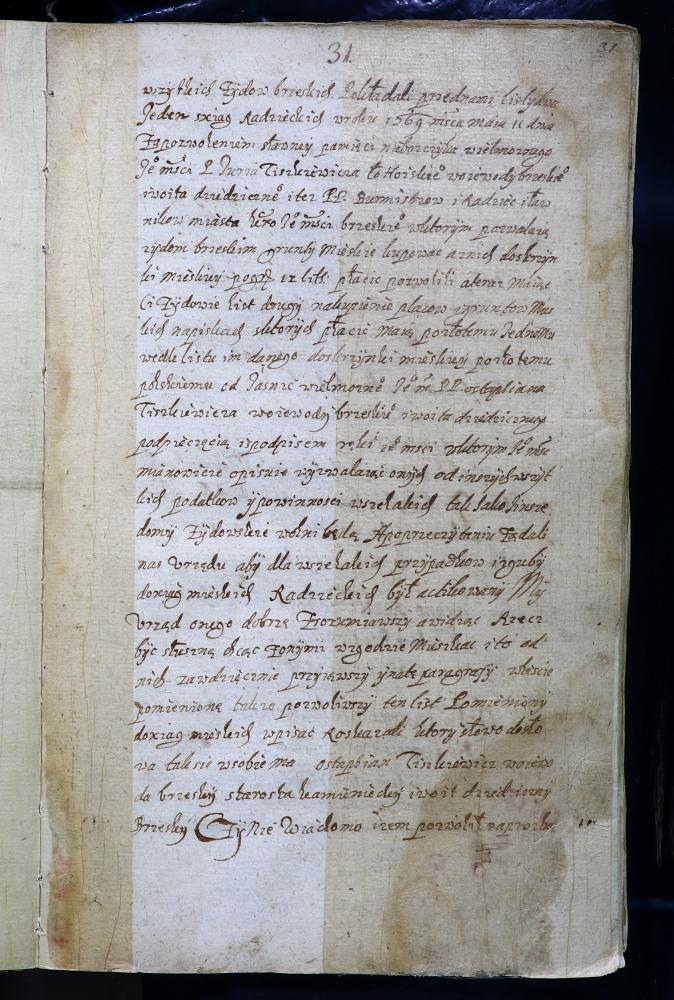 31
31
wszytkich Zydow brzeskich Pokładali przednami listy dwa
Jeden sxiąg Radzieckich wroku 1569 msca Maia 11 dnia
Zapozwoleniem sławney pamięci nieboszczyka wielmoznego
Je° msci P Juria Tiszkiewicza wojewody brzeskie°
iwoita dziedziczne° itez PP. Burmistrzow i Radziec iław
nikow miasta Je° msci brzeskie° wktorym pozwalaią
zydom brzeskim grunty Mieskie kupowac aznich doskrzyn
ki Mieskiey po gr iz lith. płacic pozwolili ateraz Maiąc
Ci Zydowie list drugy nakupienie placow igruntow Mies
kich ktorych płacic Maią Jednemu
wedle listu im danego doskrzynki mieskiey
polskiemu od Jasnie wielmozne° Je° m. P.P. ostaphana
Tiszkiewicza woiewody brzeskie° iwoita dziedzicznego
podpieczęcią ispodpisem ręki msci wktorym Je° msc
mianowicie opisuie wyzwalaiąc onych od inszych wszyt
kich podatkow ypowinnosci wszelakich tak Jako insze
domy Zydowskie wolni będą Apoprzeczytaniu Ządali
nas Vrzędu aby dla wszelakich przypadkow izguby
doxiąg mieskich Radzieckich był actikowany My
Vrząd onego dobrze Zrozumiawszy awidząc Rzecz
byc słuszną chcąc Zonymi wzgodzie Mieszkac ito od
nich zawdzięcznie przyiąwszy ynate paragrafy
pomienione także pozwoliwszy ten list Pomieniony
doxiąg mieskich wpisac Roskazali ktory słowo dosło
wa taksie wsobie ma ostaphian Tiszkiewicz woiewo
da brzeskiy starosta kamienieckiy iwoit dziedziczny
Brzeskiy Czynie Wiadomo izem pozwolił